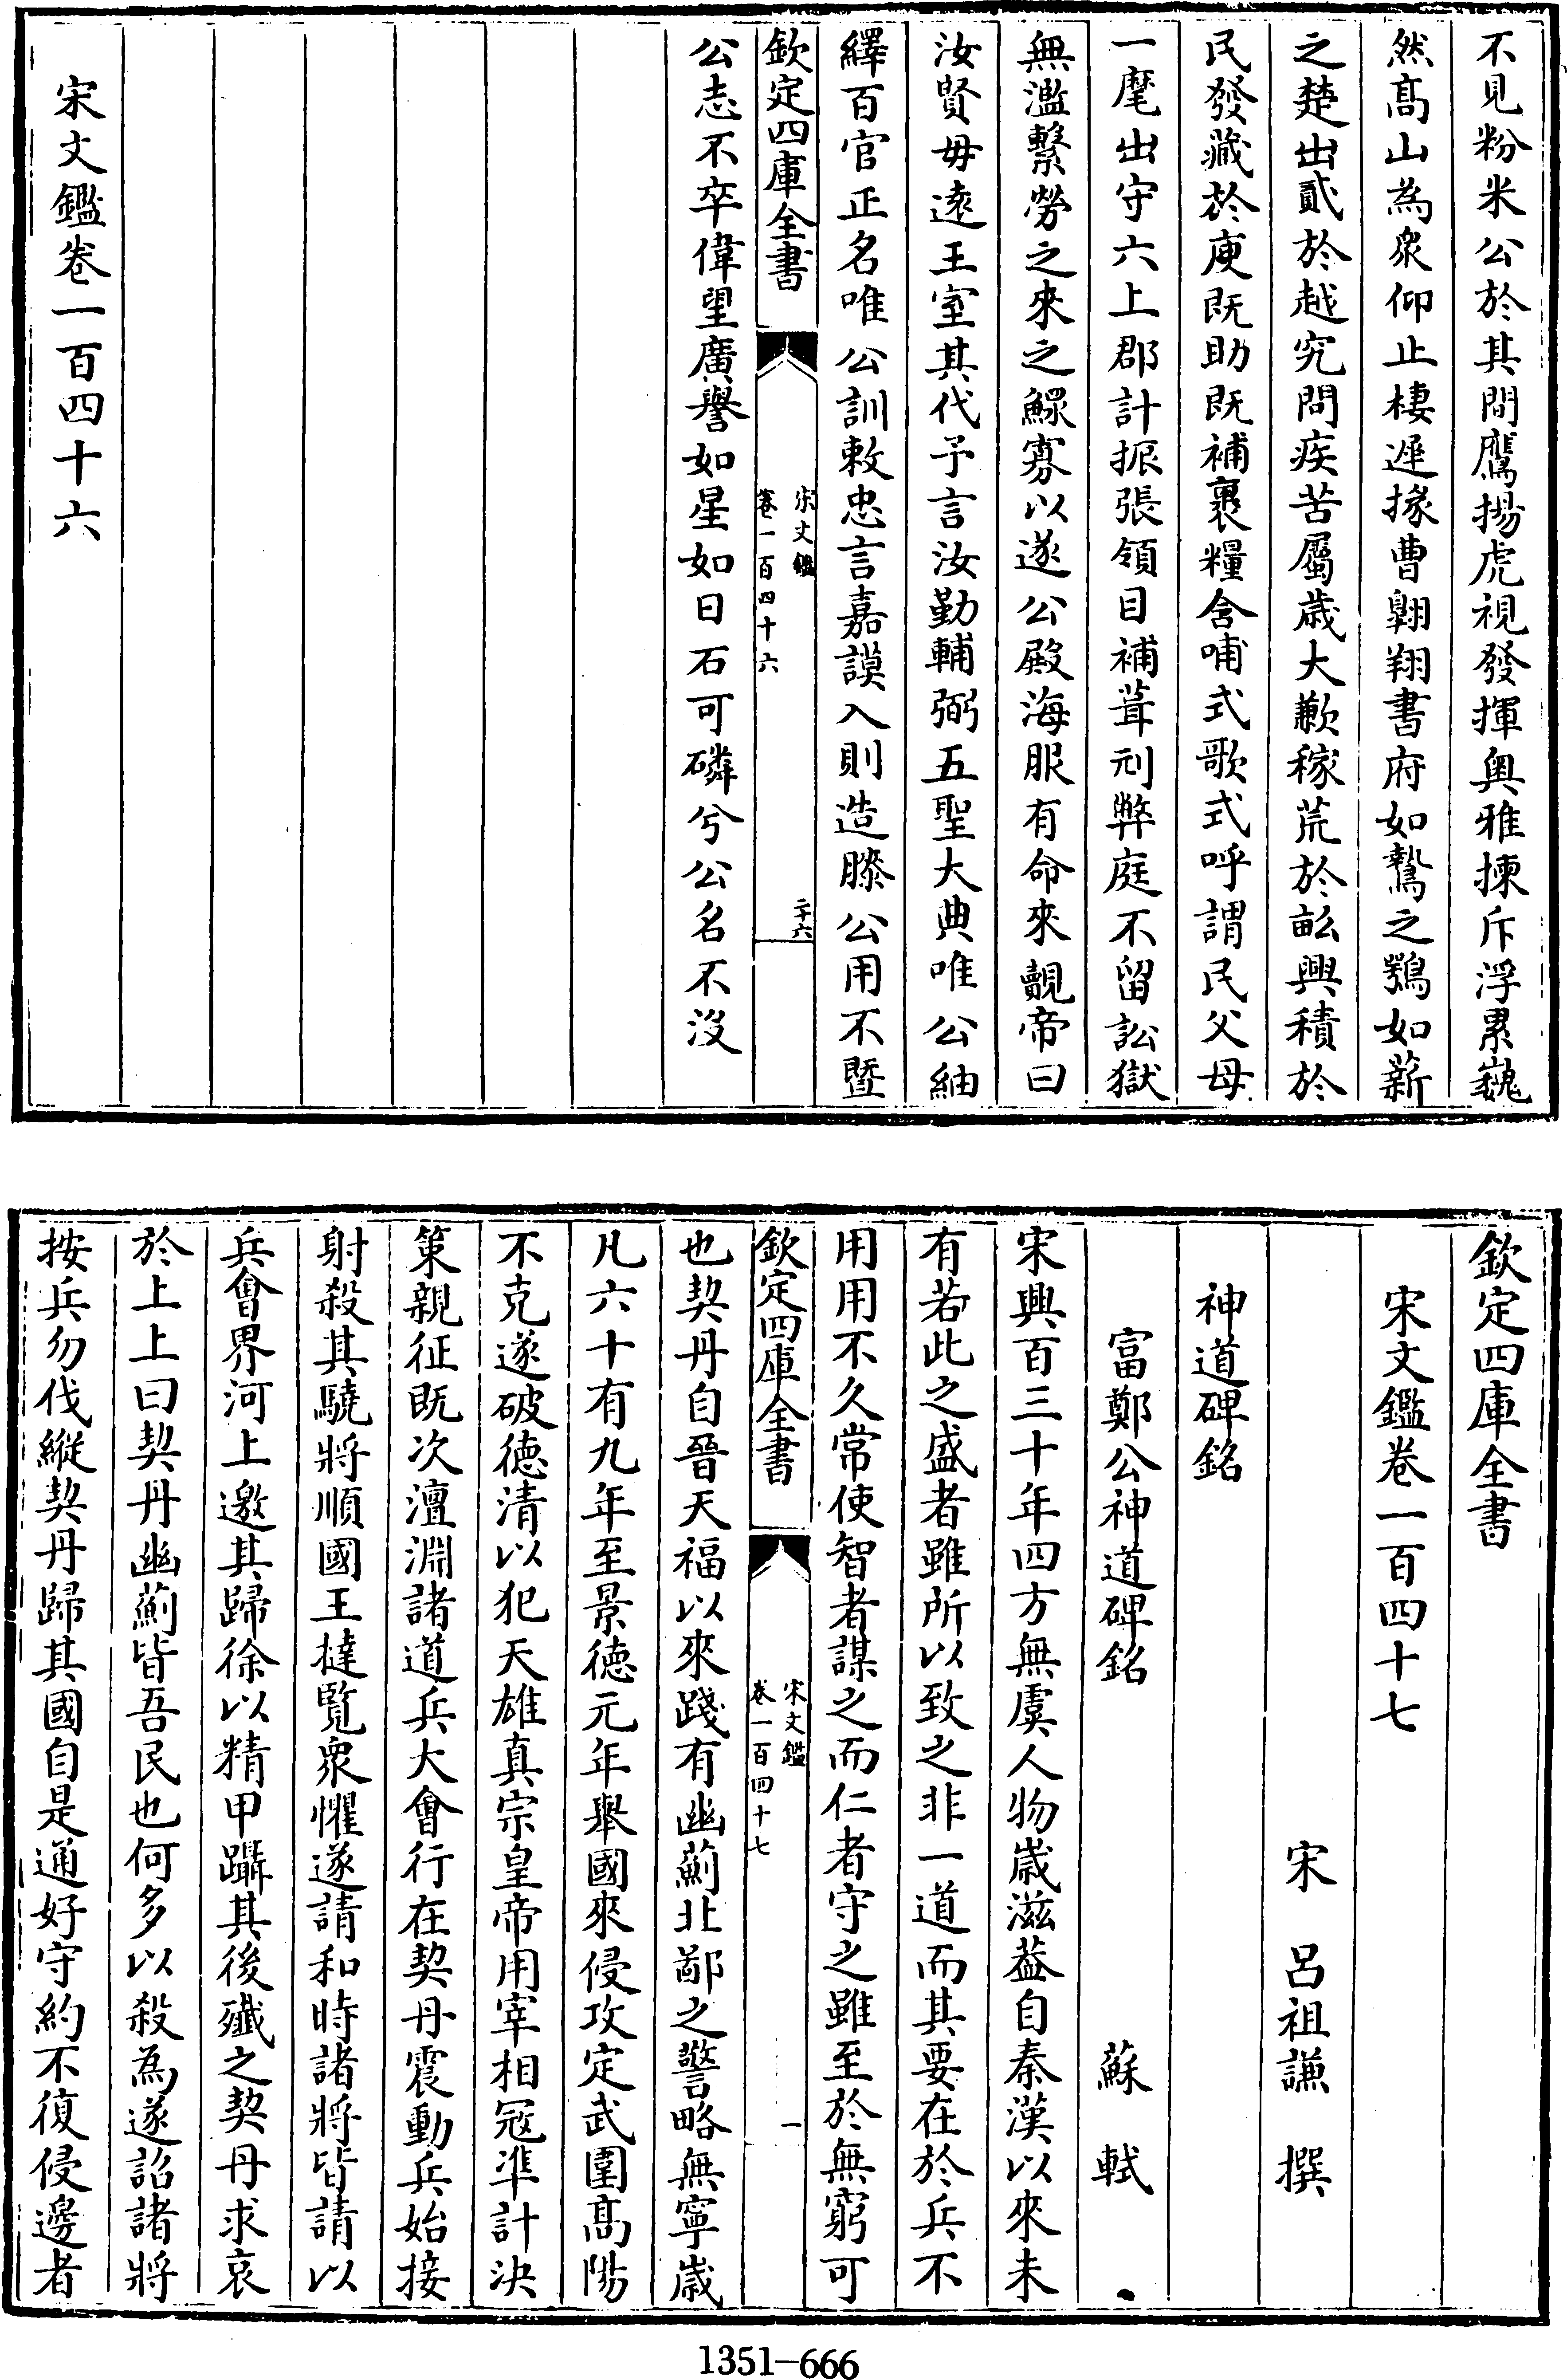 不見粉米公於其間鷹揚虎視發揮奥雅揀斥浮累巍
然髙山為衆仰止棲遲掾曹翺翔書府如鷙之鶚如薪
之楚出貳於越究問疾苦屬歳大歉稼荒於畝興積於
民發藏於庾既助既補裹糧含哺式歌式呼謂民父母
一麾出守六上郡計振張領目補葺刓弊庭不留訟獄
無濫繫勞之來之鰥寡以遂公殿海服有命來覿帝曰
汝賢毋逺王室其代予言汝勤輔弼五聖大典唯公紬
繹百官正名唯公訓敕忠言嘉謨入則造膝公用不暨
欽定四庫全書
宋文鑑
卷一百四十六
二十六
公志不卒偉望廣譽如星如日石可磷兮公名不沒
宋文鑑卷一百四十六
欽定四庫全書
宋文鑑卷一百四十七
宋 呂祖謙 撰
神道碑銘
富鄭公神道碑銘 蘇軾
宋興百三十年四方無虞人物歳滋葢自秦漢以來未
有若此之盛者雖所以致之非一道而其要在於兵不
用用不久常使智者謀之而仁者守之雖至於無窮可
欽定四庫全書
宋文鑑
卷一百四十七
一
也契丹自晉天福以來踐有幽薊北鄙之警略無寧歳
凡六十有九年至景徳元年舉國來侵攻定武圍髙陽
不克遂破徳清以犯天雄真宗皇帝用宰相冦準計決
策親征既次澶淵諸道兵大會行在契丹震動兵始接
射殺其驍將順國王撻覧衆懼遂請和時諸將皆請以
兵會界河上邀其歸徐以精甲躡其後殲之契丹求哀
於上上曰契丹幽薊皆吾民也何多以殺為遂詔諸將
按兵勿伐縱契丹歸其國自是通好守約不復侵邊者
1351-666